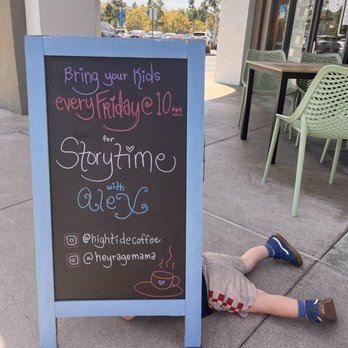 Bring your Kids
every Friday @ 10 am
for
Storytime
with
Alex
@hightidecoffee
@heyragemama